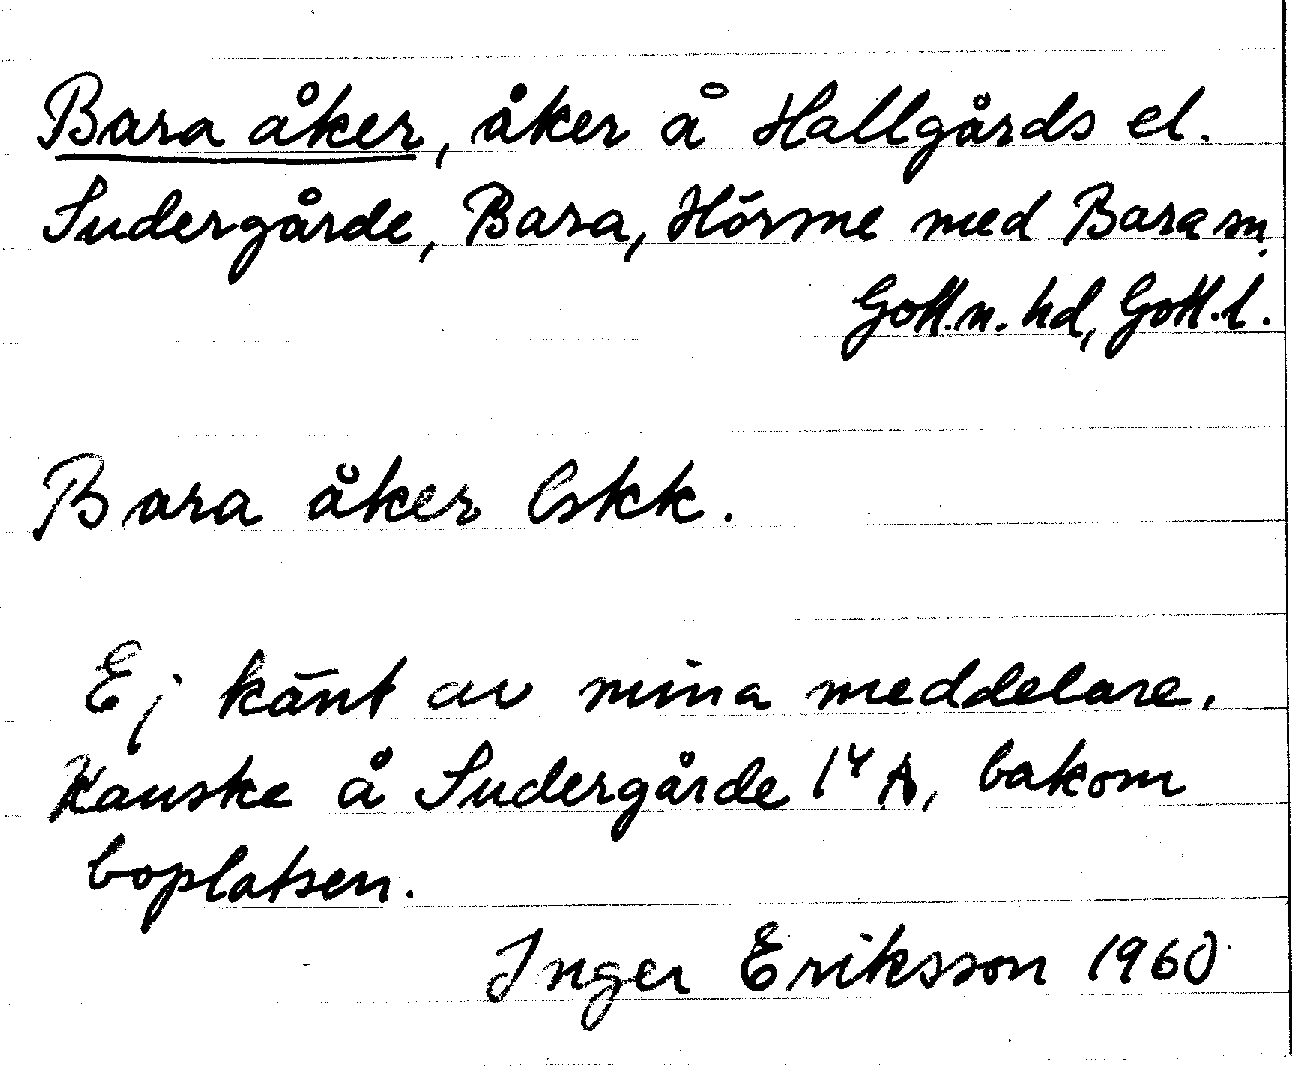 Bara åker, åker å Hallgårds el.
Sudergårde, Bara, Hörsne med Bara sn.
Gotl. n. hd, Gotl. l.
Bara åker Eskk.
Ej känt av mina meddelare.
Kanske å Sudergårde 1⁴A, bakom
boplatsen.
Inger Eriksson 1960